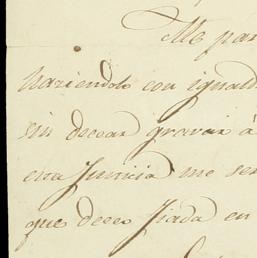 Me par
haziendolo con iguald
sin desear gravar á
esta Justicia me ser
que deseo fiada en